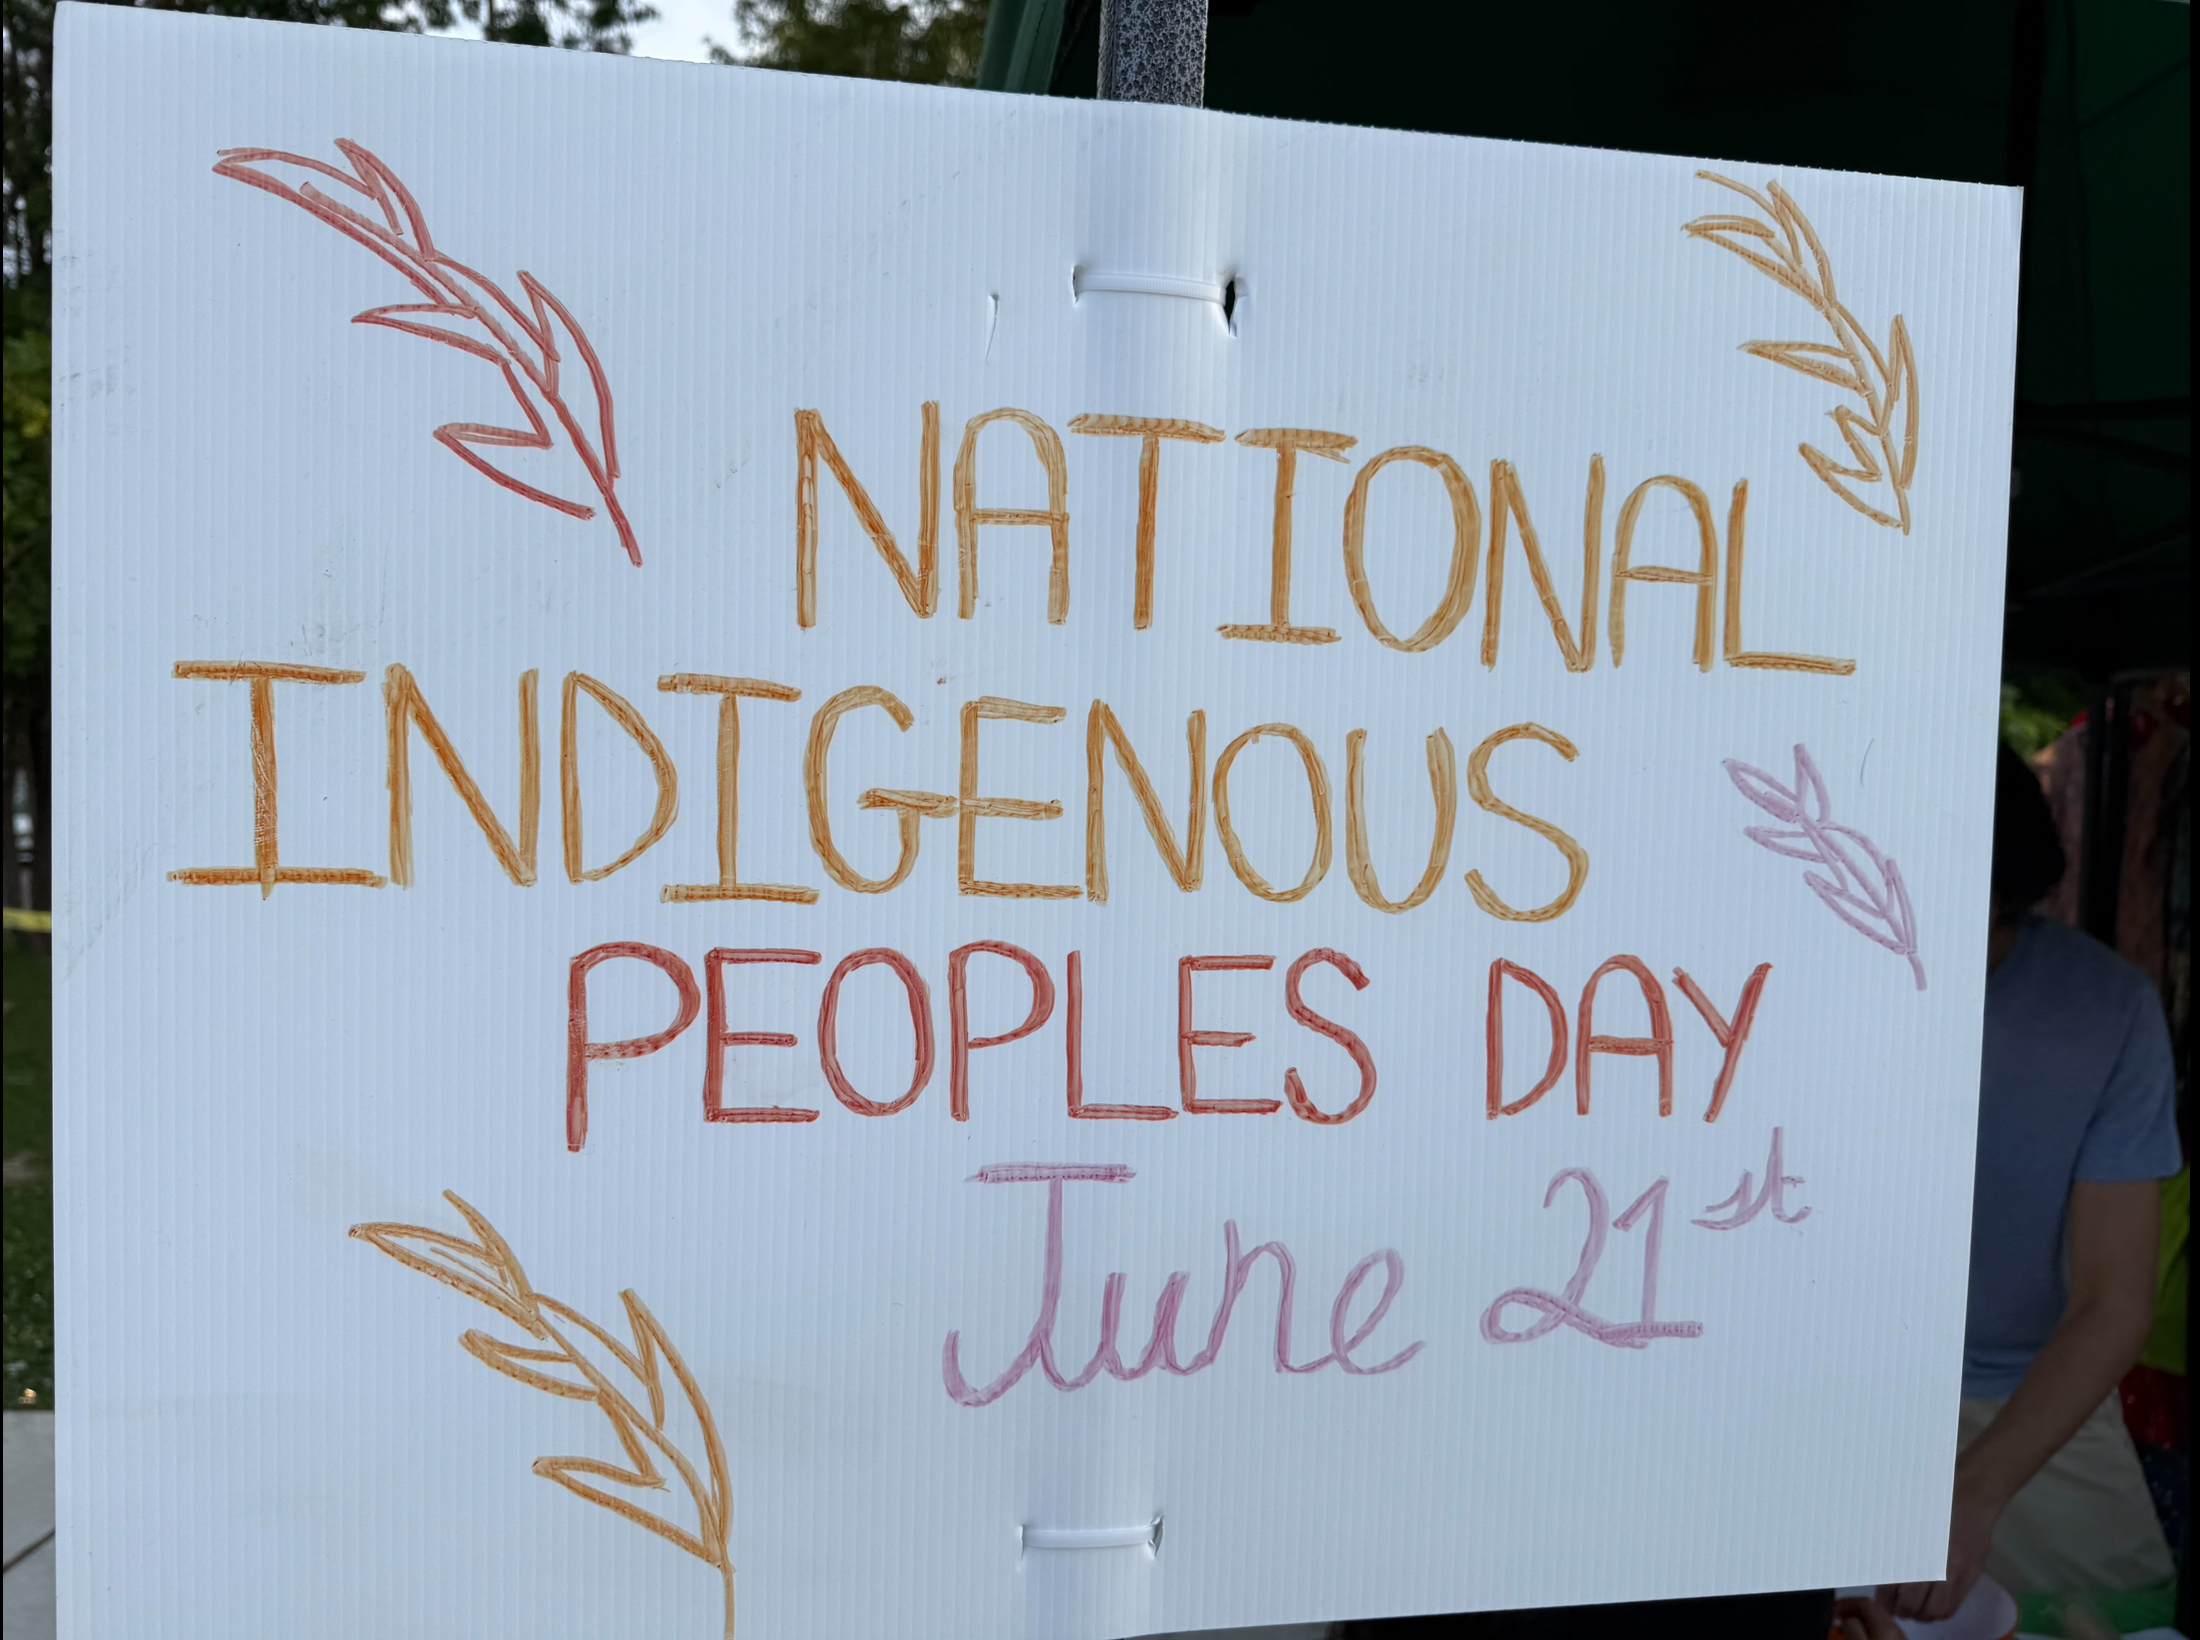 NATIONAL
INDIGENOUS
PEOPLES DAY
June 21st